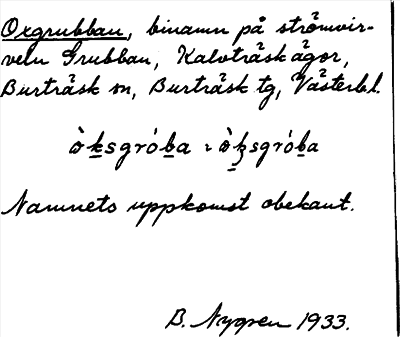 Oxgrubban, binamn på strömvir-
veln Grubban, Kalvträsk ägor,
Burträsk sn, Burträsk tg, Västerbl.
ò̀ksgróba ɛ ò̀ksgróba
Namnets uppkomst obekant.
B. Nygren 1933.